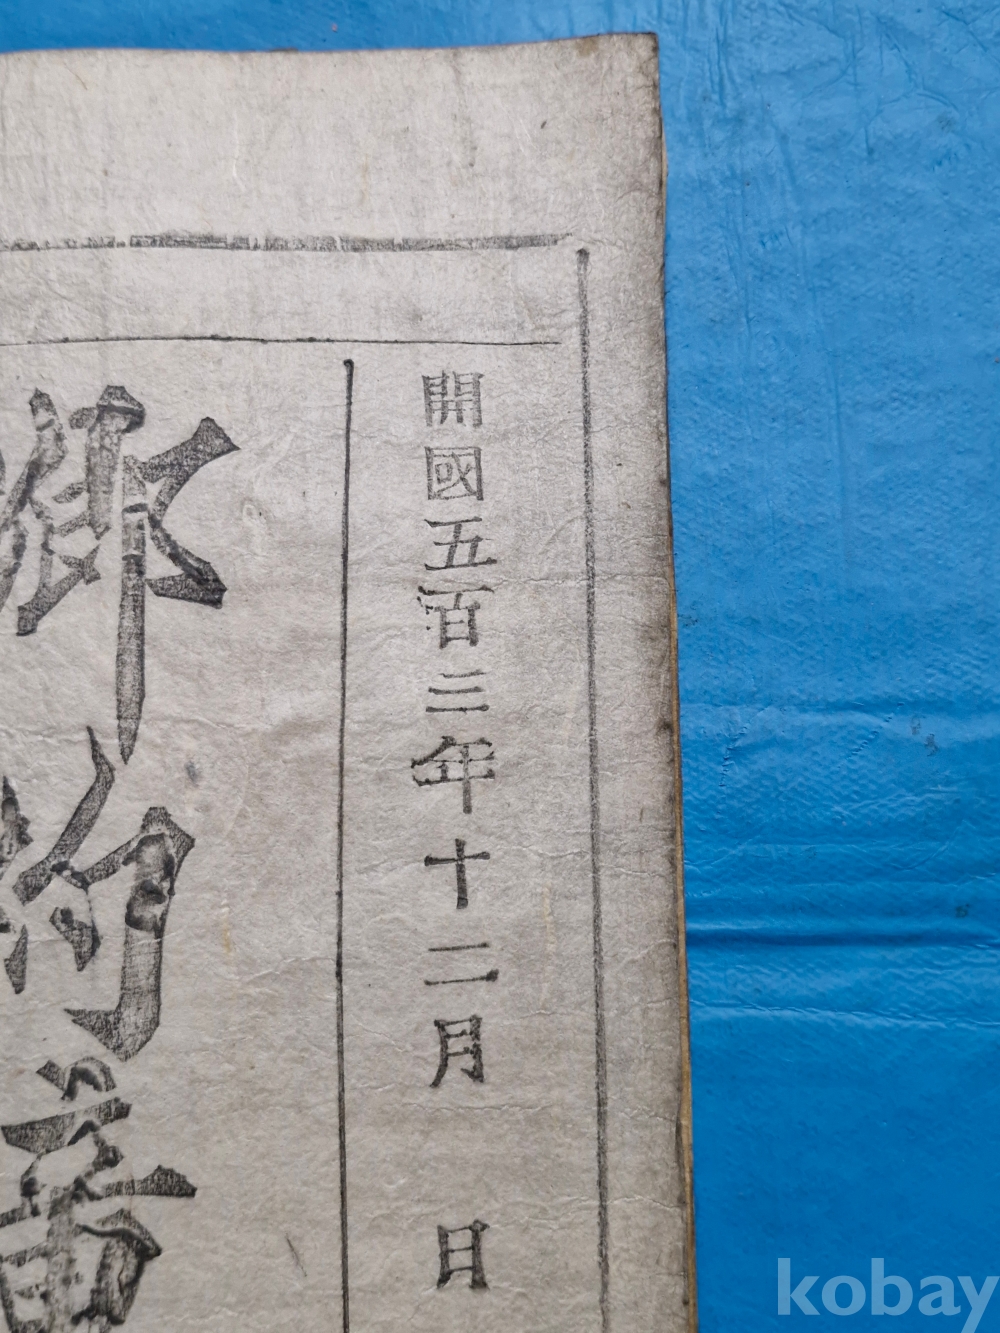 開國五百三年十二月 日
鄕約章
kobay